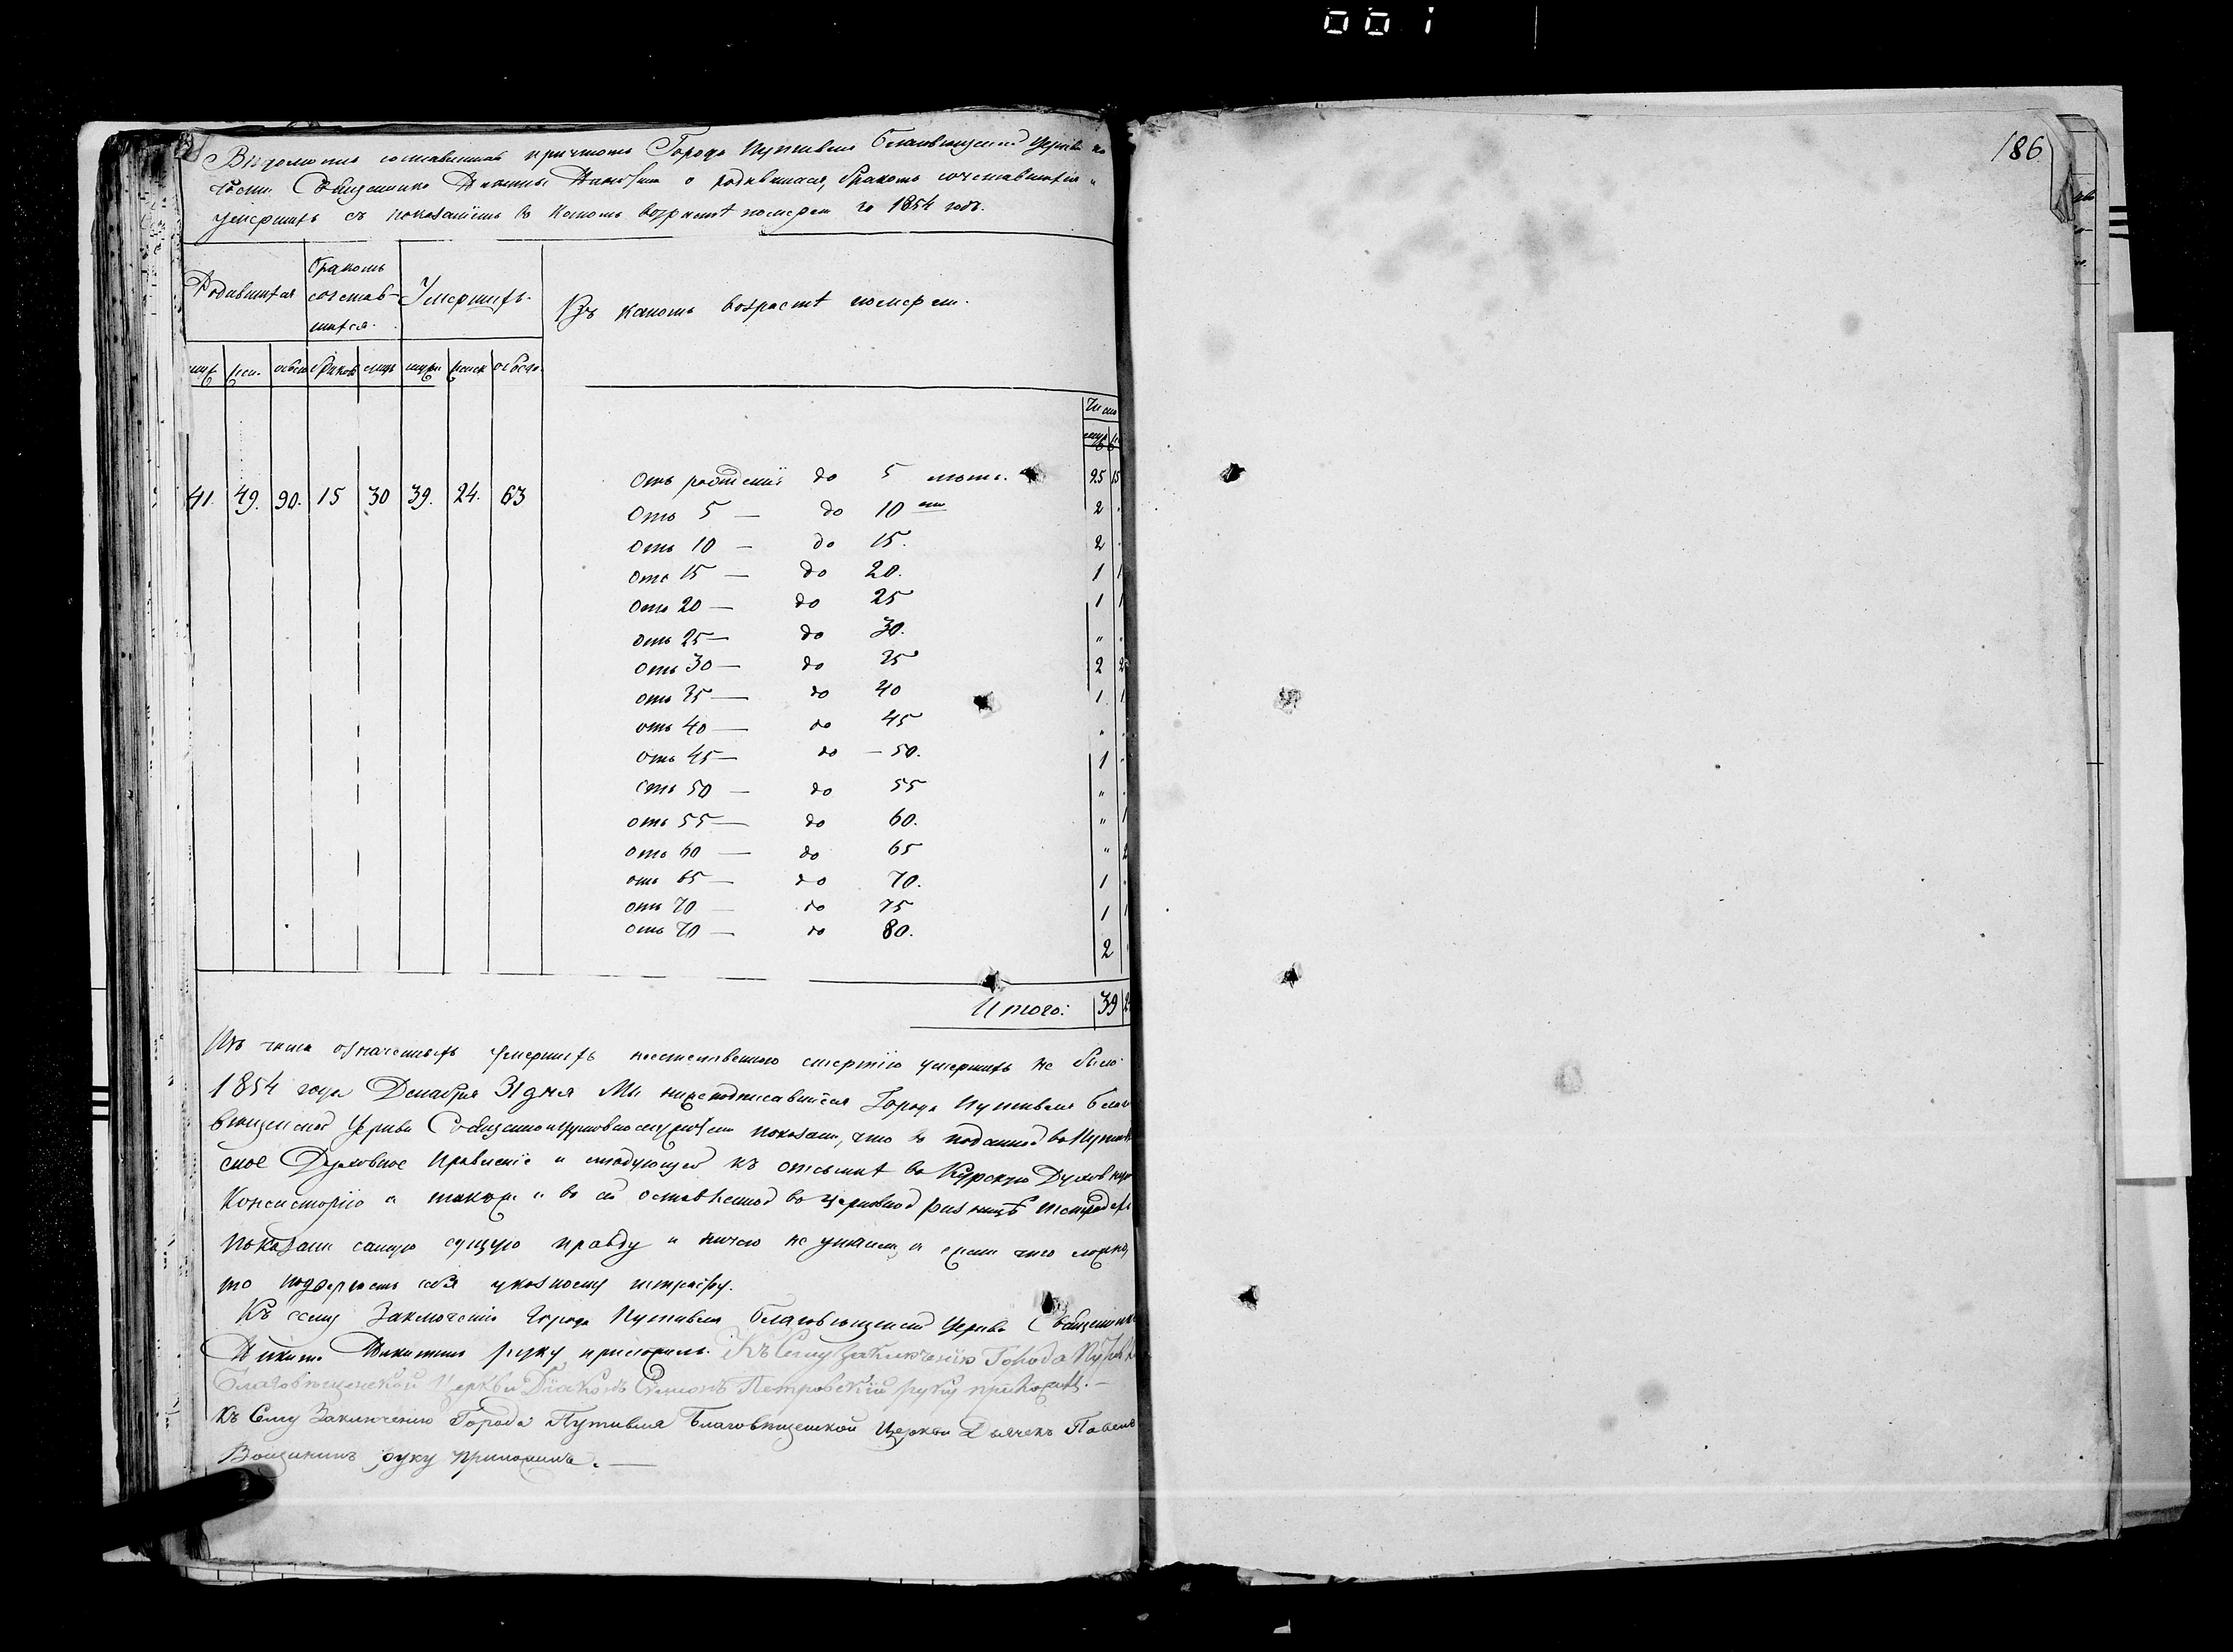 001
186
Ведомость составленная причтомъ Города Путивля Благовещенской Церкви по
части Священника Никиты Никитина о родившихся, бракомъ сочетавшихся и
умершихъ съ показаніемъ въ какомъ возрасте померли за 1854 годъ.
Родившихся
бракомъ
сочетав-
шихся.
Умершихъ.
Въ какомъ возрасте померли.
муж жен. обоего браковъ лицъ мужс женск обоего
Число
муж
41. 49. 90. 15 30 39. 24. 63
Отъ рожденія до 5 летъ. 25 15
Отъ 5 — до 10 2 .
Отъ 10 — до 15. 2 .
Отъ 15 — до 20. 1 1
Отъ 20 — до 25 1 1
отъ 25 — до 30. " .
отъ 30 — до 35 2 2
отъ 35 — до 40 1 1
отъ 40 — до 45 " .
отъ 45 — до — 50. 1 .
отъ 50 — до 55 " .
отъ 55 — до 60. " 1
отъ 60 — до 65 " 2
отъ 65 — до 70. 1 .
отъ 70 — до 75 1 1
отъ 70 — до 80. 2
Итого: 39
Изъ числа означенныхъ умершихъ неестественною смертію умершихъ не было
1854 года Декабря 31 дня Мы нижеподписавшіеся Города Путивля Благо
вещенской Церкви Священноцерковнослужители показали, что въ поданной въ Путивль
ское Духовное Правленіе и следующей къ отсылке въ Курскую Духовную
Консисторію а также и въ сей оставленной въ церковной ризнице тетрадехъ
показали самую сущую правду и ничего не утаили, а если что ложно,
то подвергаемъ себя указному штрафу.
Къ сему Заключенію Города Путивля Благовещенской Церкви Священникъ
Никита Никитинъ руку приложилъ. Къ Сему заключенію Города Путивля
Благовещенской Церкви Діаконъ Симеонъ Петровскій руку приложилъ. —
Къ Сему Заключенію Города Путивля Благовещенской Церкви Дьячекъ Павелъ
руку приложилъ. —